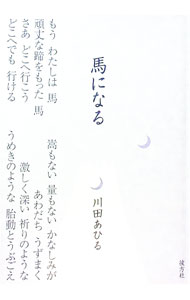 もう わたしは 馬
頑丈な蹄をもった 馬
さあ どこへ行こう
どこへでも 行ける
馬になる
川田あひる
嵩もない 量もない かなしみが
あわだち うずまく
激しく深い 祈りのような
うめきのような 胎動とうぶごえ
淡交社